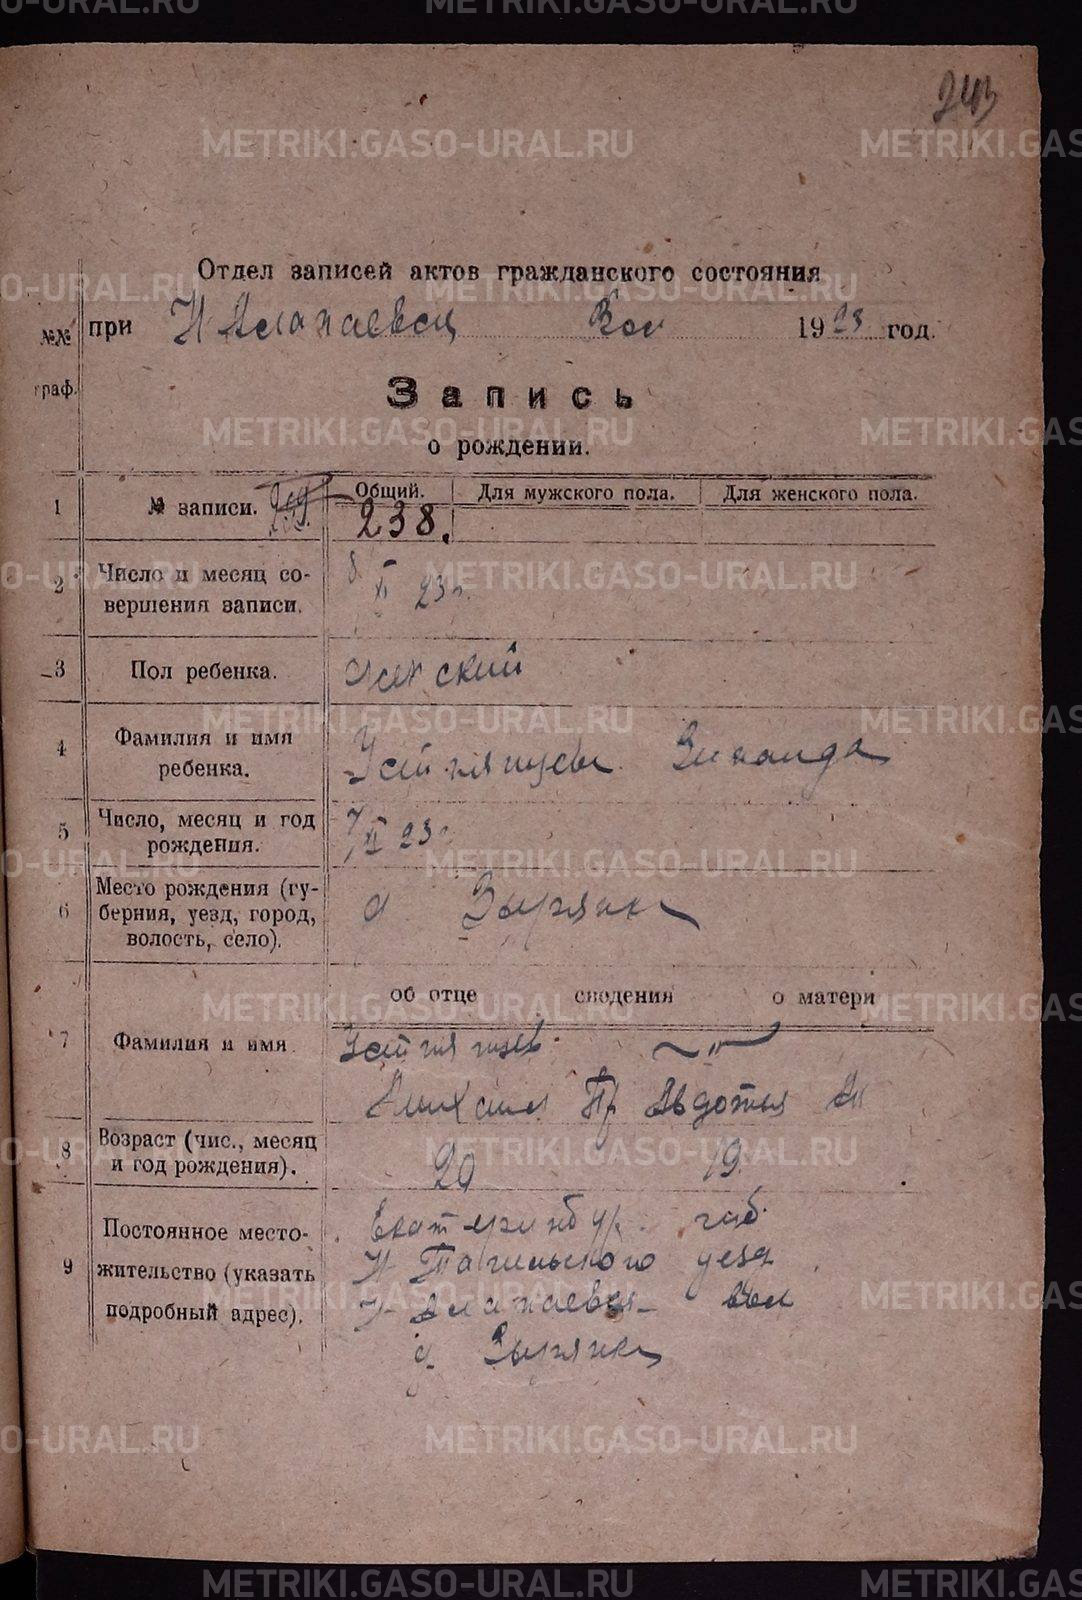 243
Отдел записей актов гражданского состояния
№№ граф.
при Н Алапаевск Вол 1923 год.
Запись
о рождении.
1 № записи. Общий. Для мужского пола. Для женского пола.
238.
2 Число и месяц совершения записи. 8 XI 23 г.
3 Пол ребенка. женский
4 Фамилия и имя ребенка. Устьянцева Зинаида
5 Число, месяц и год рождения. 7/XI 23 г
6 Место рождения (губерния, уезд, город, волость, село). д Зырянка
об отце сведения о матери
7 Фамилия и имя Устьянцев —"—
Михаил Пр Авдотья Ан
8 Возраст (чис., месяц и год рождения). 20 19
9 Постоянное местожительство (указать подробный адрес). Екатеринбур. губ.
Н Тагильского уезд
Н Алапаевск вол
д Зырянка
METRIKI.GASO-URAL.RU